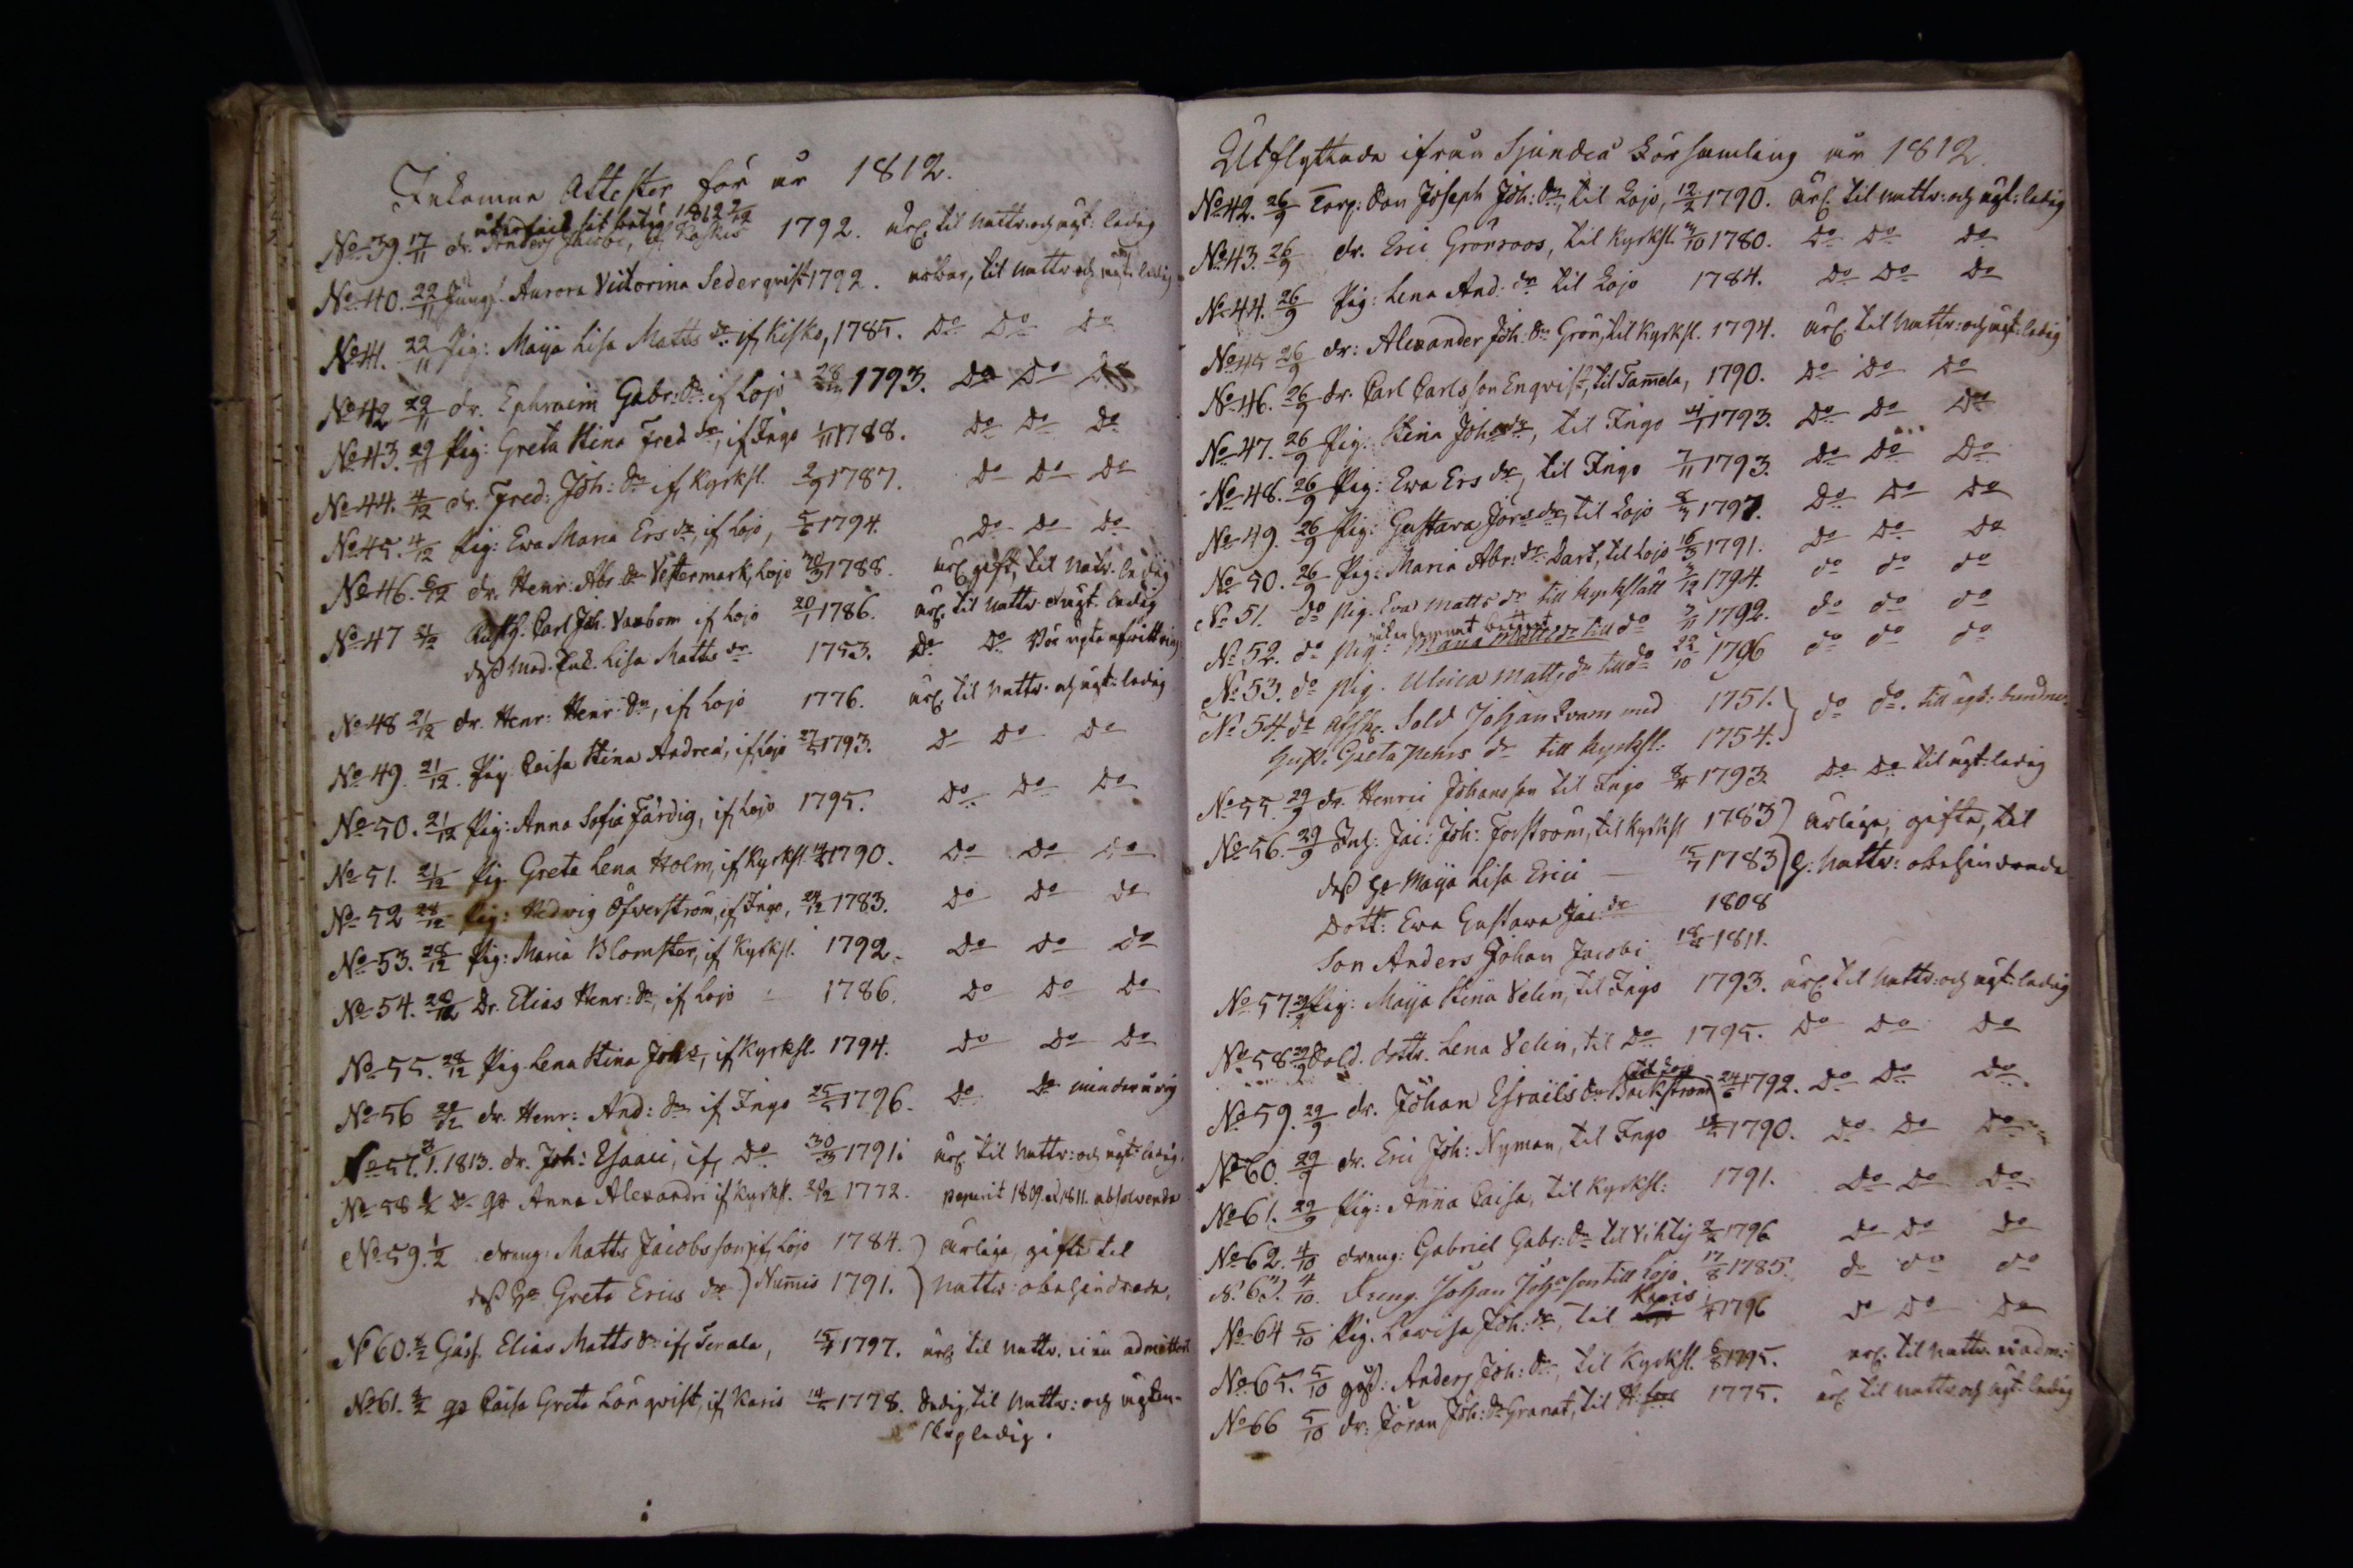 Inkomna Attester för år 1812.
återfick sit betyg 1812 2/12
No 39. 17/11 dr. Anders Jacobi, if Kaskis 1792. ärl. til nattv: och ägt: ledig
No 40. 22/11 Jungf. Aurora Victorina Sederqvist 1792. ärbar, til nattv och ägt: ledig
No 41. 22/11 Pig: Maija Lisa Matts dr. if Kisko, 1785. Do Do Do
No 42 22/11 dr. Ephraim Gabr: Sn if Lojo 28/ 1793. Do Do Do
No 43. 29/11 Pig: Greta Stina Fred dr, if Ingo 1/11 1788. Do Do Do
No 44. 4/12 dr. Fred: Joh: Sn if Kyrksl. 2/9 1787. Do Do Do
No 45. 4/12 Pig: Ewa Maria Ers dr, if Lojo, 5/6 1794. Do Do Do
No 46. 6/12 dr. Henr: Abr. Sn Vestermark, Lojo 30/3 1788. ärl. gift, til natv. ledig
No 47 21/12 Carl Joh. Vaxbom if Lojo 20/1 1786. ärl. til nattv. ägt. ledig
dess Mod. Enk. Lisa Matts dr. 1753. Do Do
No 48 21/12 dr. Henr: Henr: Sn, if Lojo 1776. ärl. til nattv. och ägt: ledig
No 49. 21/12. Pig. Caisa Stina Andreæ, if Lojo 27/5 1793. Do Do Do
No 50. 21/12 Pig: Anna Sofia Färdig, if Lojo 1795. Do Do Do
No 51. 21/12 Pig. Greta Lena Holm, if Kyrksl. 14/4 1790. Do Do Do
No 52 28/12 Pig: Hedwig Öfverström, if Ingo, 24/12 1783. Do Do Do
No 53. 28/12 Pig: Maria Blomster, if Kyrksl. 1792. Do Do Do
No 54. 28/12 Dr. Elias Henr: Sn, if Lojo 1786. Do Do Do
No 55. 28/12 Pig. Lena Stina Joh dr, if Kyrksl. 1794. Do Do Do
No 56 29/12 dr. Henr: And: Sn if Ingo 25/5 1796. Do Do minderårig
No 57. 3/1. 1813. dr. Joh: Esaaci, if Do 30/3 1791. ärl. til nattv: och ägt: ledig.
No 58 Anna Alexandri if Kyrksl. 21/2 1772. peperit 1809. et 1811. absolverade
No 59. 1/2 dreng: Matts Jacobsson, if Lojo 1784. ) ärliga, gifte til
dess Ho Greta Erics dr ) Numis 1791. ) nattv: obehindrade,
No 60. 2/2 Goss. Elias Matts Sn if Tenala, 15/4 1797. ärl. til nattv. ei än admitterd
No 61. Caisa Greta Lönqvist, if Karis 14/5 1778. til nattv: och ägten-
skap ledig.
Utflyttade ifrån Sjundeå Församling år 1812.
No 42. 26/9 Torp: Son Joseph Joh: Sn, til Lojo, 12/2 1790. ärl. til nattv: och ägt: ledig
No 43. 26/9 dr. Eric Grönroos, til Kyrksl. 1780. Do Do Do
No 44. 26/9 Pig: Lena And: dr til Lojo 1784. Do Do Do
No 45 26/9 dr: Alexander Joh. Sn Grön, til Kyrksl. 1794. ärl. til nattv: och ägt: ledig
No 46. 26/9 dr. Carl Carlsson Enqvist, til Tamela, 1790. Do Do Do
No 47. 26/9 Pig: Stina Johs dr, til Ingo 1793. Do Do Do
No 48. 26/9 Pig: Ewa Ers dr, til Ingo 7/11 1793. Do Do Do
No 49. 26/9 Pig: Gustava Jörs dr, til Lojo 1797. Do Do Do
No 50. 26/9 Pig: Maria Abr: dr. Dart, til Lojo 16/3 1791. Do Do Do
No 51. do pig. Eva Matts dr till Kyrkslätt 1794. do do do
No 52. do pig: Maria Matts dr till do 1792. do do do
No 53. do pig. Ulrica Matts dr till do 22/10 1796 do do do
No 54. do afsk. Sold Johan Kvam med 1751. } do do. till ägt: bundne.
hust. Greta Pehrs dr till Kyrksl: 1754. }
No 55 29/9 dr. Henric Johansson til Ingo 8/4 1793 Do Do til ägt: ledig
No 56. 29/9 Inh: Jac: Joh: Forsström, til Kyrksl 1783 ) ärliga, gifta, til
dess Ho Maija Lisa Erici — 15/7 1783 ) H. nattv: obehindrade
Dott: Ewa Gustawa Jac: dr 1808
Son Anders Johan Jacobi 18/ 1811.
No 57. 29/9 Pig: Maija Stina Velin, til Ingo 1793. ärl. til nattv: och ägt: ledig
No 58 29/9 Sold. dottr. Lena Velin, til Do 1795. Do Do Do
til Lojo
No 59. 29/9 dr. Johan Esraels Sn Backström 24/6 1792. Do Do Do
No 60. 29/9 dr. Eric Joh: Nyman, til Ingo 1790. Do Do Do
No 61. 29/9 Pig: Anna Caisa, til Kyrksl: 1791. Do Do Do
No 62. 4/10 dreng: Gabriel Gabr: Sn til Vihtij 1796 Do Do Do
No 63. 4/10. dreng. Johan Johansson till Lojo. 17/8 1785. do do do
No 64 5/10 Pig. Lovisa Joh: dr, til Karis 1796 Do Do Do
No 65. 5/10 goss: Anders Joh: Sn, til Kyrksl. 6/8 1795. ärl. til nattv. ei adm:
No 66 5/10 dr: Jöran Joh: Sn Granat, til H:fors 1775. ärl. til nattv. och ägt: ledig